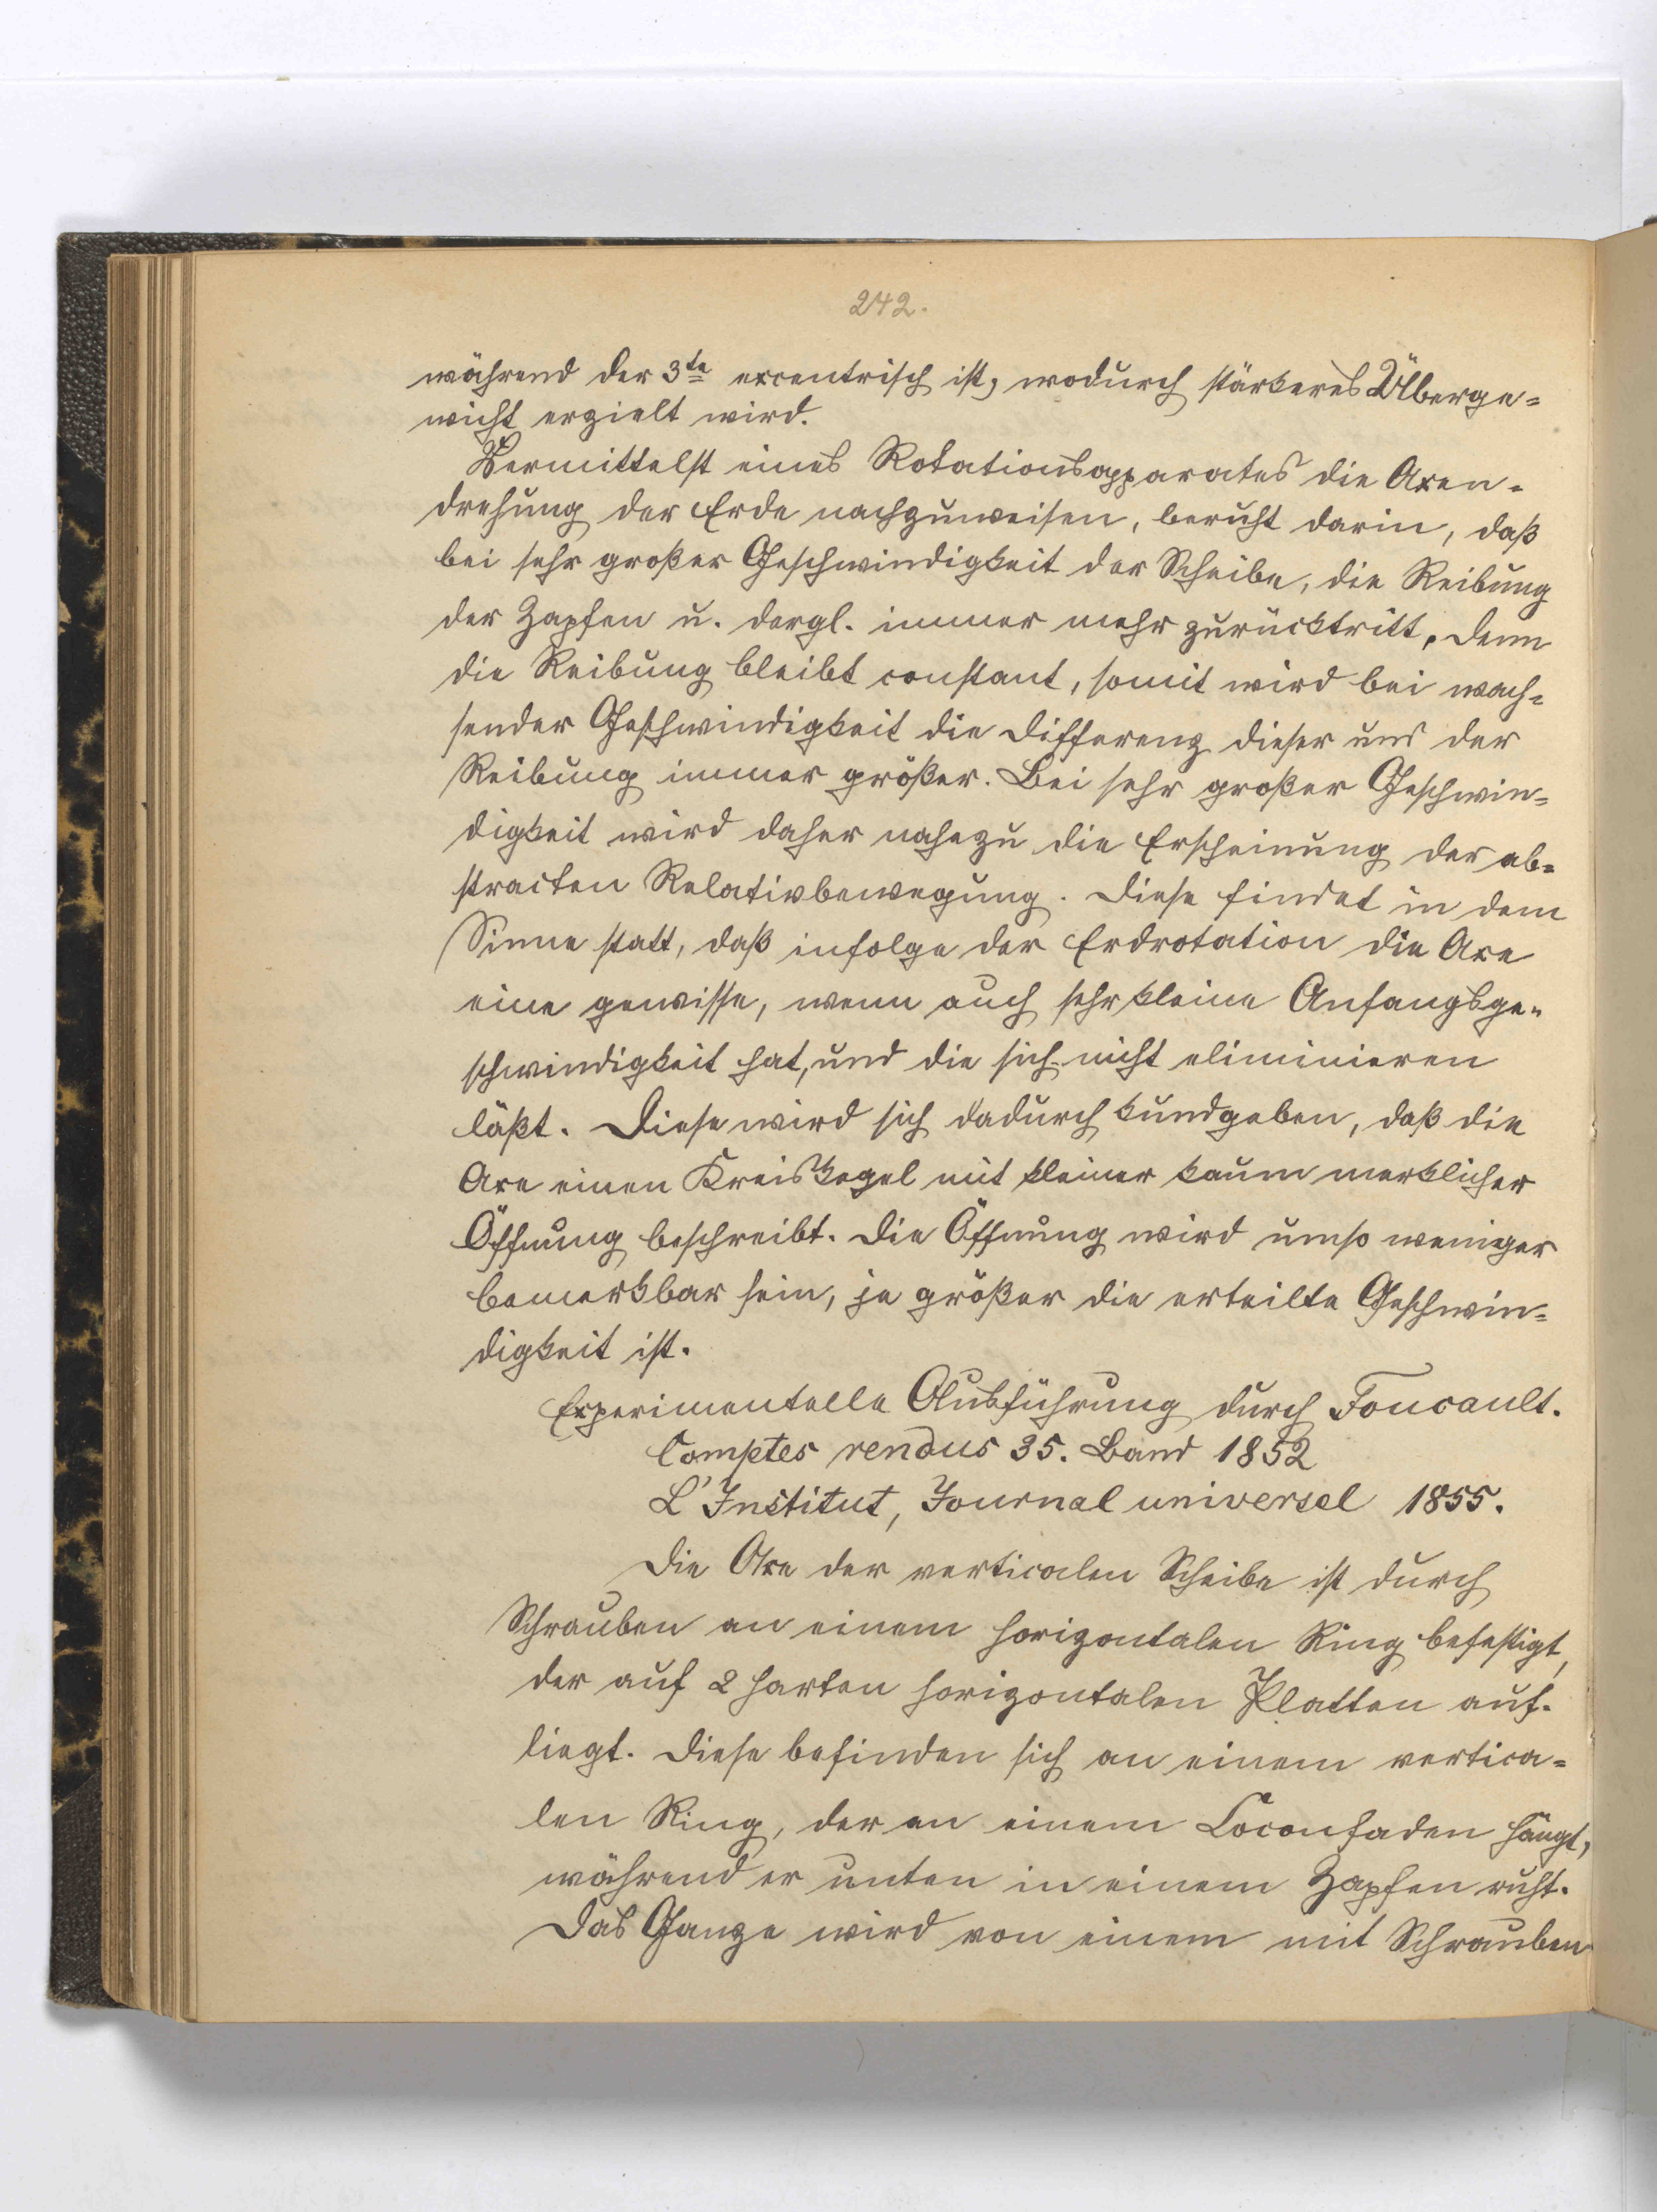 242.
während der 3te excentrisch ist, wodurch stärkeres Überge=
wicht erzielt wird.
Vermittelst eines Rotationsapparates die Axen=
drehung der Erde nachzuweisen, beruht darin, daß
bei sehr großer Geschwindigkeit der Scheibe, die Reibung
der Zapfen u. dergl. immer mehr zurücktritt, denn
die Reibung bleibt constant, somit wird bei wach=
sender Geschwindigkeit die Differenz dieser und der
Reibung immer größer. Bei sehr großer Geschwin=
digkeit wird daher nahezu die Erscheinung der ab=
stracten Relativbewegung. Diese findet in dem
Sinne statt, daß infolge der Erdrotation die Axe
eine gewisse, wenn auch sehr kleine Anfangsge=
schwindigkeit hat, und die sich nicht eliminieren
läßt. Diese wird sich dadurch kundgeben, daß die
Axe einen Kreiskegel mit kleiner kaum merklicher
Öffnung beschreibt. Die Öffnung wird umso weniger
bemerkbar sein, je größer die erteilte Geschwin=
digkeit ist.
Experimentelle Ausführung durch Foucault.
Comptes rendus 35. Band 1852
L'Institut, Journal universel 1855.
Die Axe der verticalen Scheibe ist durch
Schrauben an einem horizontalen Ring befestigt,
der auf 2 harten horizontalen Platten auf=
liegt. Diese befinden sich an einem vertica=
len Ring, der an einem Coconfaden hängt,
während er unten in einem Zapfen ruht.
Das Ganze wird von einem mit Schrauben